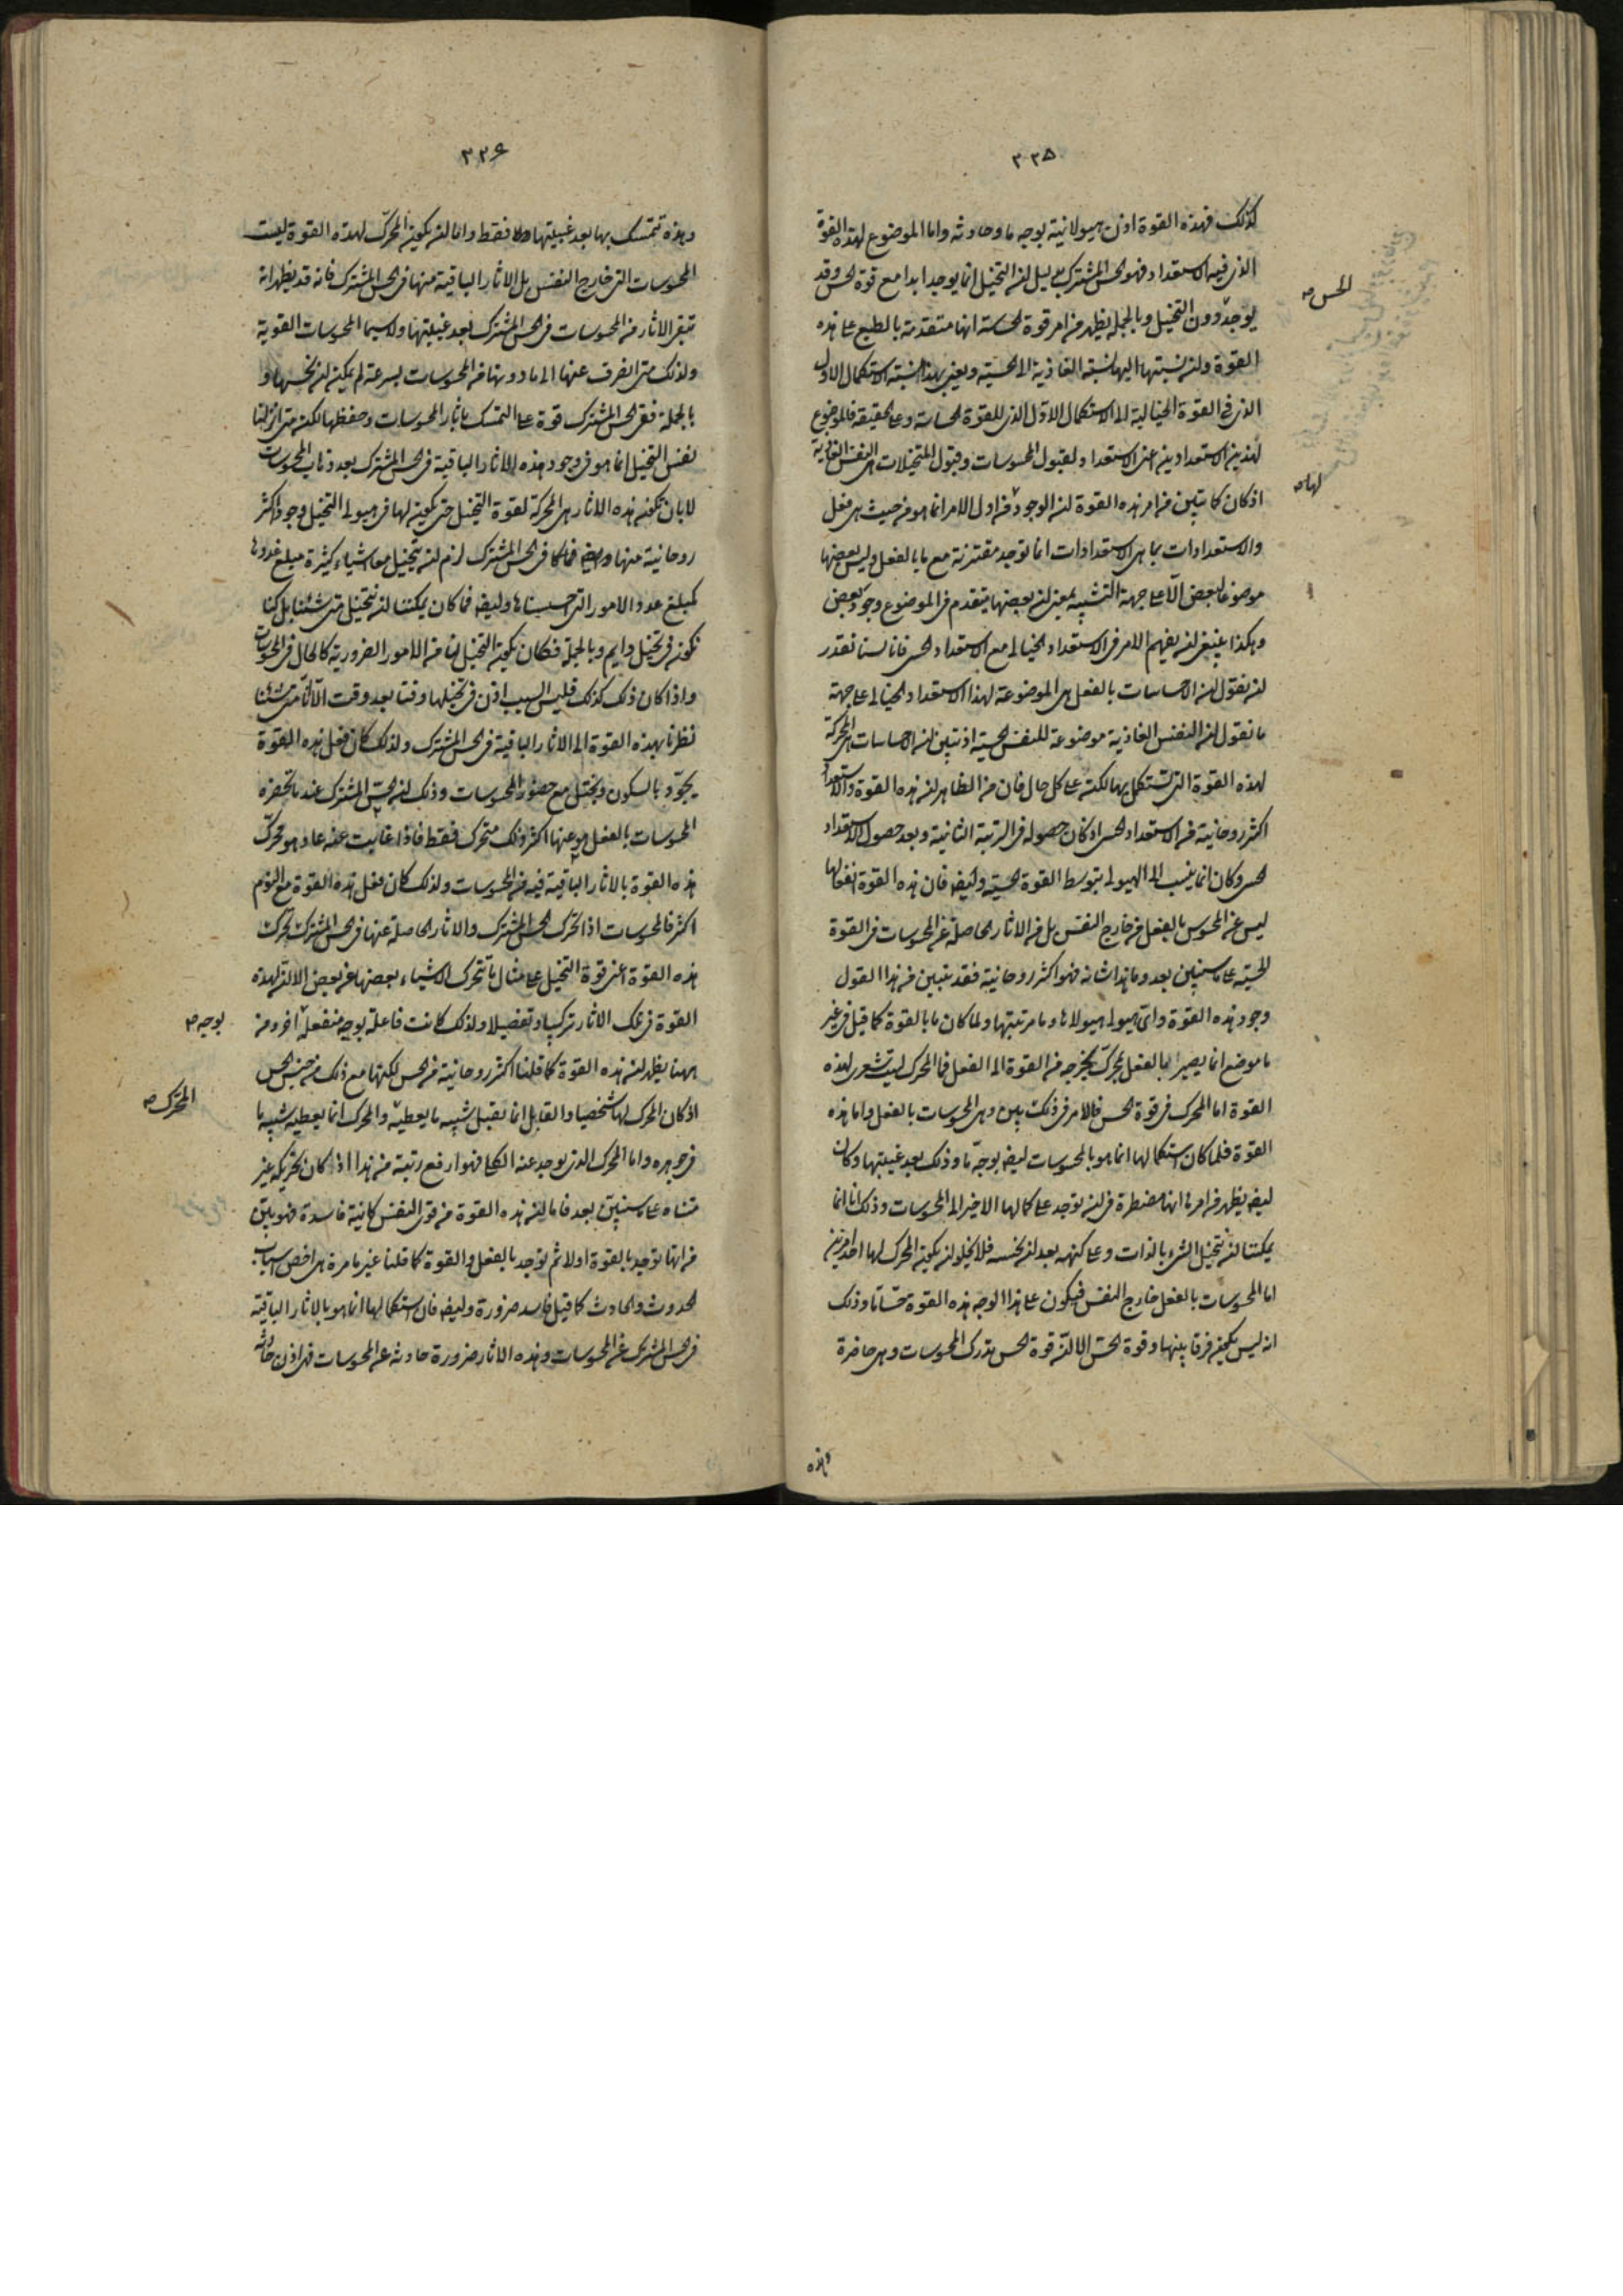 ٣٣٥
كذلك فهذه القوة اذن هيولانية بوجه ما وحادثة واما الموضوع لهذه القوة
الذى فيه الاستعداد فهو الحس المشترك بدليل ان التخيل انما يوجد ابدا مع قوة الحس وقد
يوجد دون التخيل وبالجملة يظهر من امر قوة الحاسة انها متقدمة بالطبع على هذه
القوة وان نسبتها اليها نسبة الغاذية الى الحسية ونعنى بهذا نسبة الاستكمال الاول
الذى فى القوة الخيالية الى الاستكمال الاول الذى للقوة الحاسة وعلى الحقيقة فالموضوع
لهذين الاستعدادين اعنى الاستعداد لقبول المحسوسات وقبول المتخيلات هى النفس الغاذية
اذ كان كما تبين من امر هذه القوة ان الوجود فى اول الامر انما هو من حيث هى فعل
والاستعدادات بما هى الاستعدادات انما توجد مقترنة مع ما بالفعل وليس بعضها
موضوعا لبعض الا على جهة التشبيه بمعنى ان بعضها يتقدم فى الموضوع وجود بعض
وهكذا ينبغى ان يفهم الامر فى الاستعداد الخيالى مع الاستعداد الحسى فانا لسنا نقدر
ان نقول ان الاحساسات بالفعل هى الموضوعة لهذا الاستعداد الخيالى على جهة
ما نقول ان النفس الغاذية موضوعة للنفس الحسية اذ تبين ان الاحساسات هى المحركة
لهذه القوة التى تستكمل بها لكنه على كل حال فان من الظاهر ان هذه القوة والاستعداد
اكثر روحانية من الاستعداد الحسى اذ كان حصوله فى الرتبة الثانية وبعد حصول الاستعداد
الحسى وكان انما ينسب الى الهيولى بتوسط القوة الحسية وايضا فان هذه القوة انفعالها
ليس عن المحسوس بالفعل من خارج النفس بل من الاثار الحاصلة عن المحسوسات فى القوة
الحسية على ما سنبين بعد وما هذا شانه فهو اكثر روحانية فقد تبين من هذا القول
وجود هذه القوة واى هيولى هيولاها وما مرتبتها ولما كان ما بالقوة كما قيل فى غير
ما موضع انما يصير ما بالفعل بمحرك يخرجه من القوة الى الفعل فما المحرك ليت شعرى لهذه
القوة اما المحرك فى قوة الحس فالامر فى ذلك بين وهى المحسوسات بالفعل واما هذه
القوة فلما كان استكمالها انما هو بالمحسوسات ايضا بوجه ما وذلك بعد غيبتها وكان
ايضا يظهر من امرها انها مضطرة فى ان توجد على كمالها الاخير الى المحسوسات وذلك انا انما
يمكننا ان نتخيل الشىء بالذات وعلى كنهه بعد ان نحسه فلا يخلو ان يكون المحرك لها احد امرين
اما المحسوسات بالفعل خارج النفس فيكون على هذا الوجه هذه القوة حسا ما وذلك
انه ليس يكون فرقا بينها وقوة الحس الا ان قوة الحس تدرك المحسوسات وهى حاضرة
وهذه
الحس صح
لها صح
٣٣٦
وهذه تتمسك بها بعد غيبتها فقط واما ان يكون المحرك لهذه القوة ليست
المحسوسات التى خارج النفس بل الاثار الباقية منها فى الحس المشترك فانه قد يظهر انه
تبقى الاثار من المحسوسات فى الحس المشترك بعد غيبتها ولا سيما المحسوسات القوية
ولذلك متى انصرف عنها الى ما دونها من المحسوسات بسرعة لم يمكن ان نحسها و
بالجملة ففى الحس المشترك قوة على التمسك باثار المحسوسات وحفظها لكن متى انزلنا
نفس التخيل انما هو فى وجود هذه الاثار الباقية فى الحس المشترك بعد ذهاب المحسوسات
لا بان تكون هذه الاثار هى المحركة لقوة التخيل حتى يكون لها فى هيولى التخيل وجود اكثر
روحانية منها فى الحس المشترك لزم ان نتخيل معا اشياء كثيرة مبلغ عددها
كمبلغ عدد الامور التى احسسناها وايضا فما كان يمكننا ان نتخيل متى شئنا بل كنا
نكون فى تخيل دايم وبالجملة فكان يكون التخيل لنا من الامور الضرورية كالحال فى المحسوسات
واذا كان ذلك كذلك فليس السبب اذن فى تخيلها وقتا بعد وقت الا انا متى شئنا
نظرنا بهذه القوة الى الاثار الباقية فى الحس المشترك ولذلك كان فعل هذه القوة
يجود بالسكون ويختل مع حضور المحسوسات وذلك ان الحس المشترك عند ما تحضره
المحسوسات بالفعل هو عنها اكثر ذلك متحرك فقط فاذا غابت عنه عاد هو محرك
هذه القوة بالاثار الباقية فيه من المحسوسات ولذلك كان فعل هذه القوة مع النوم
اكثر فالمحسوسات اذا تحرك الحس المشترك والاثار الحاصلة عنها فى الحس المشترك تحرك
هذه القوة اعنى قوة التخيل على مثال ما تتحرك الاشياء بعضها عن بعض الا ان لهذه
القوة فى تلك الاثار تركيبا وتفصيلا ولذلك كانت فاعلة بوجه منفعلة اخر ومن
ههنا يظهر ان هذه القوة كما قلنا اكثر روحانية من الحس لكنها مع ذلك من جنس الحس
اذ كان المحرك لها شخصيا والقابل انما يقبل شبيه ما يعطيه والمحرك انما يعطيه شبيه ما
فى جوهره واما المحرك الذى يوجد عنه الكلى فهو ارفع رتبة من هذا اذ كان تحريكه غير
متناه على ما سنبين بعد فاما ان هذه القوة من قوى النفس كائنة فاسدة فهو بين
من انها توجد بالقوة اولا ثم توجد بالفعل والقوة كما قلنا غير ما مرة هى اخص اسباب
الحدوث والحادث كما قيل فاسد ضرورة وايضا فان استكمالها انما هو بالاثار الباقية
فى الحس المشترك عن المحسوسات وهذه الاثار ضرورة حادثة عن المحسوسات فهى اذن حادثة
بوجه صح
المحرك صح